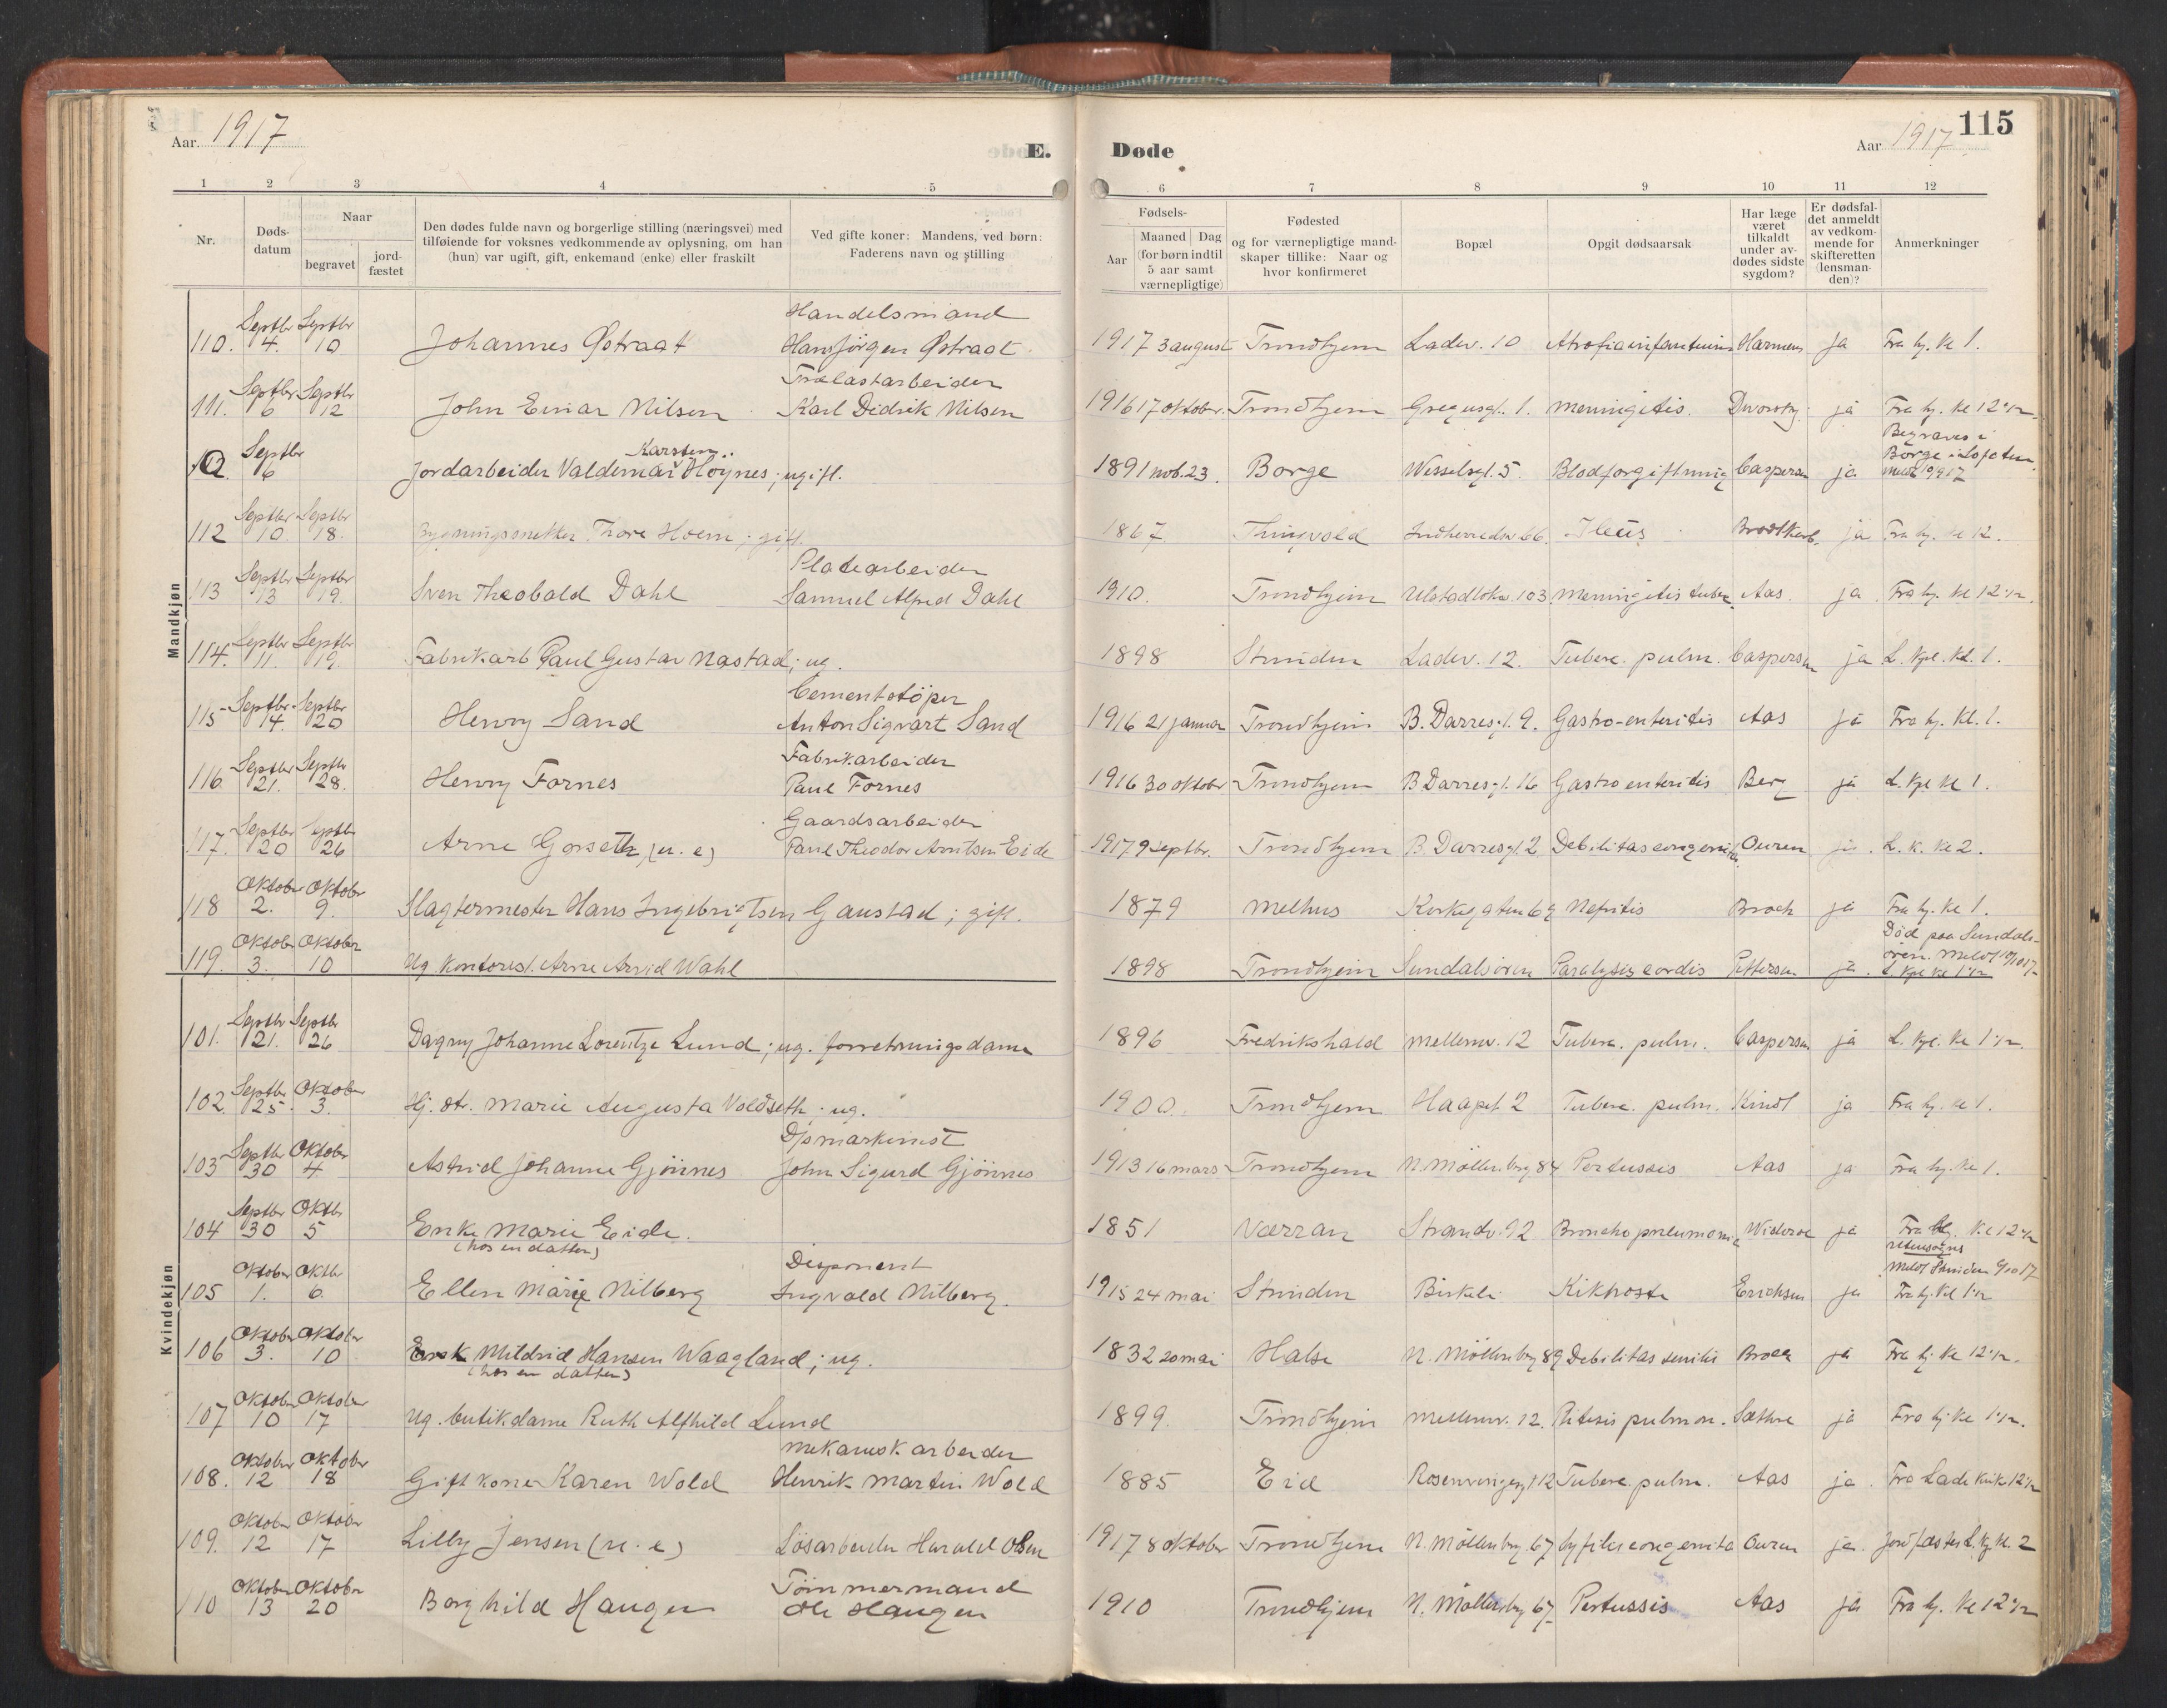 115
Aar 1917
E. Døde
Aar 1917
1 2 3 4 5 6 7 8 9 10 11 12
Nr.
Døds-datum
Naar
begravet
jord-fæstet
Den dødes fulde navn og borgerlige stilling (næringsvei) med
tilføiende for voksnes vedkommende av oplysning, om han
(hun) var ugift, gift, enkemand (enke) eller fraskilt
Ved gifte koner: Mandens, ved børn:
Faderens navn og stilling
Fødsels-
Aar
Maaned Dag
(for børn indtil
5 aar samt
værnepligtige)
Fødested
og for værnepligtige mand-
skaper tillike: Naar og
hvor konfirmeret
Bopæl
Opgit dødsaarsak
Har læge
været
tilkaldt
under av-
dødes sidste
sygdom?
Er dødsfal-
det anmeldt
av vedkom-
mende for
skifteretten
(lensman-
den)?
Anmerkninger
Mandkjøn
110. Septbr 4. Septbr 10 Johannes Østraat Handelsmand Hans Jørgen Østraat 1917 3 august Trondhjem Ladev. 10 Atrofia infantum ja Fra hj. kl 1.
111. Septbr 6 Septbr 12 John Einar Nilsen Trælastarbeider Karl Didrik Nilsen 1916 17 oktober Trondhjem Gregusgt. 1. Meningitis. Dworsky ja Fra hj. kl 12 1/2
Septbr 6 Jordarbeider Valdemar Karsten Høynes; ugift. 1891 nov. 23. Borge Wesselsgt. 5. Blodforgiftning Caspersen ja Begraves i Borge i Lofoten
112 Septbr 10. Septbr 18. Bygningssnekker Thore Hoem; gift. 1867 Thingvold Indherredsv. 66. Ileus ja Fra hj. kl 12.
113 Septbr 13 Septbr 19. Sven Theobald Dahl Platearbeider Samuel Alfred Dahl 1910. Trondhjem Ulstadløkv. 103. Meningitis tuberc. Aas. ja Fra hj. kl 12 1/2.
114. Septbr 11. Septbr 19. Fabrikarb Paul Gustav Nastad; ug. 1898 Strinden Ladev. 12. Tuberc. pulm. Caspersen ja L. kpl. kl. 1.
115 Septbr. 14. Septbr 20 Henry Sand Cementstøper Anton Sigvart Sand 1916 21 januar Trondhjem B. Darresgt. 9. Gastro-enteritis Aas ja Fra hj. kl. 1.
116 Septbr 21. Septbr 28. Henry Fornes Fabrikarbeider Paul Fornes 1916 30 oktober Trondhjem B Darresgt. 16 Gastroenteritis Berg ja L. kpl kl 1.
117. Septbr 20 Septbr 26 Arne Gorseth (u. e) Gaardsarbeider Paul Theodor Arntsen Eide 1917 9 Septbr. Trondhjem B. Darresgt. 2. Debilitas congenita Ouren ja. L. k. kl 2.
118 Oktober 2. Oktober 9. Slagtermester Hans Ingebrigtsen Gaustad; gift. 1879 Melhus Kirkegaten 69 Nefritis Broch ja Fra hj. kl 1.
119. Oktober 3. Oktober 10 Ug. kontorist. Arne Arvid Wahl 1898 Trondhjem Sundalsøren Paralysis cordis Pettersen ja. Død paa Sundalsøren. L. kpl kl 1 1/2
Kvindekjøn
101. Septbr 21. Septbr 26 Dagny Johanne Lorentze Lund; ug. forretningsdame 1896 Fredrikshald Mellemv. 12 Tuberc. pulm. Caspersen ja L. kpl. kl 1 1/2.
102. Septbr 25. Oktober 3. Hj. dtr. Marie Augusta Voldseth; ug. 1900. Trondhjem 2 Tuberc. pulm. Kindt ja Fra hj. kl 1.
103 Septbr 30 Oktober 4 Astrid Johanne Gjønnes John Sigurd Gjønnes 1913 16 mars Trondhjem N. Møllenberg 84 Pertussis Aas ja Fra hj. kl 1.
104 Septbr 30 Oktbr 5 Enke Marie Eide. (hos en datter) 1851 Værran Strandv. 92 Bronchopneumoni Widerøe ja Fra hj. kl 12 1/2
105 Oktober 1. Oktbr 6. Ellen Marie Nilberg Disponent Ingvald Nilberg. 1915 24 mai Strinden Birkeli Kikhoste Erichsen ja utensogns Meldt Strinden 9/10 17 Fra hj. kl 1 1/2
106 Oktober 3. Oktober 10 Mildrid Hansen Waagland; ug. (hos en datter) 1832 20 mai Halse N. Møllenberg 89 Debilitas senilis ja Fra hj. kl 12 1/2.
107 Oktober 10 Oktober 17 Ug. butikdame Ruth Alfhild Lund 1899. Trondhjem Mellemv. 12. Ftisis pulmon. Sæthre ja Fra hj. kl 1 1/2.
108. Oktober 12 Oktober 18 Gift kone Karen Wold Mekanisk arbeider Henrik Martin Wold 1885 Eid Tuberc. pulm. Aas ja. Fra Lade kirk 12 1/2
109. Oktober 12 Oktober 17 Lilly Jensen (u. e) Løsarbeider Harald Olsen 1917 8 oktober Trondhjem N. Møllenberg 67 Syfilis congenita Ouren ja. Jordfæstes L. kp. kl. 2
110 Oktober 13 Oktober 20 Borghild Haugen Tømmermand Ole Haugen 1910 Trondhjem N. Møllenberg 67 Pertussis Aas ja Fra hj. kl 12 1/2